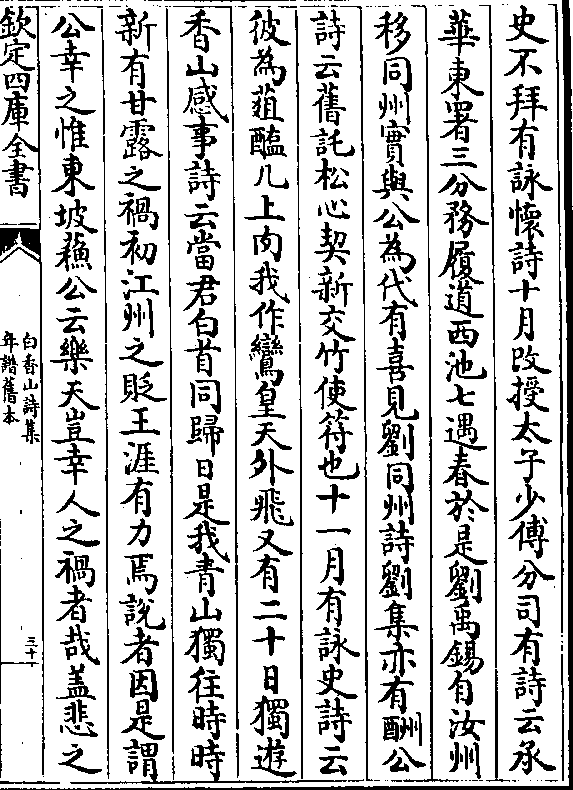 史不拜有詠懷詩十月改授太子少傅分司有詩云承
華東署三分務履道西池七遇春於是劉禹錫自汝州
移同州實與公為代有喜見劉同州詩劉集亦有酬公
詩云舊託松心契新交竹使符也十一月有詠史詩云
彼為葅醢几上肉我作鸞皇天外飛又有二十日獨遊
香山感事詩云當君白首同歸日是我青山獨往時時
新有甘露之禍初江州之貶王涯有力焉說者因是謂
公幸之惟東坡蘓公云樂天豈幸人之禍者哉盖悲之
欽定四庫全書
白香山詩集
年譜舊本
三十